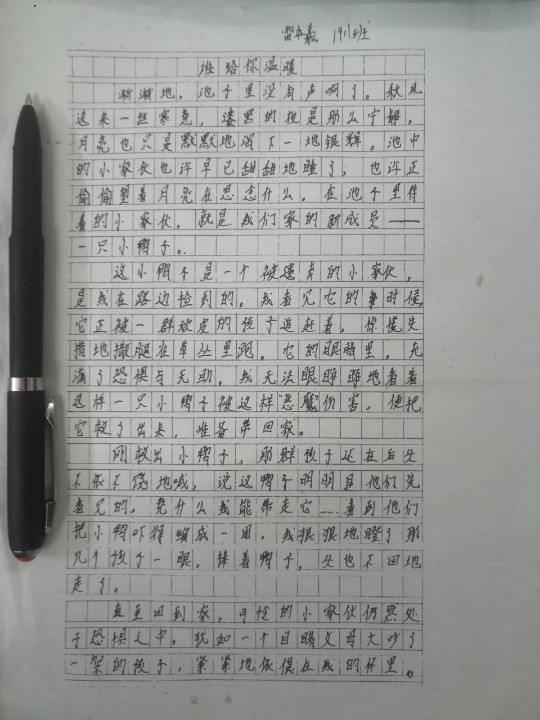 1911班
给你温暖
渐渐地，池子里没有声响了。秋风
送来一丝寒意，漆黑的夜是那么宁静，
月亮也只是默默地泻下一地银辉。池中
的小家伙也许早已甜甜地睡了，也许正
偷偷望着月亮在思念什么。在池子里待
着的小家伙，就是我们家的新成员——
一只小鸭子。
这小鸭子是一个被遗弃的小家伙，
是我在路边捡到的。我看见它的时候，
它正被一群放皮的孩子追赶着，惊慌失
措地撒腿在草丛里跑，它的眼睛里，充
满了恐惧与无助。我无法眼睁睁地看着
这样一只小鸭子被这样"恶魔"伤害，便把
它救了出来，准备带回家。
刚救出小鸭子，那群孩子还在后头
不依不饶地喊，说这鸭子明明是他们先
看见的，凭什么我能带走它……看到他们
把小鸭吓得缩成一团，我狠狠地瞪了那
几个孩子一眼，捧着鸭子，头也不回地
走了。
直至回到家，可怜的小家伙仍然处
于恐惧之中，犹如一个目睹父母大吵了
一架的孩子，紧紧地依偎在我的怀里。